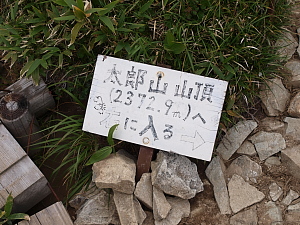 太郎山山頂
(2372.9m)へ
に入る